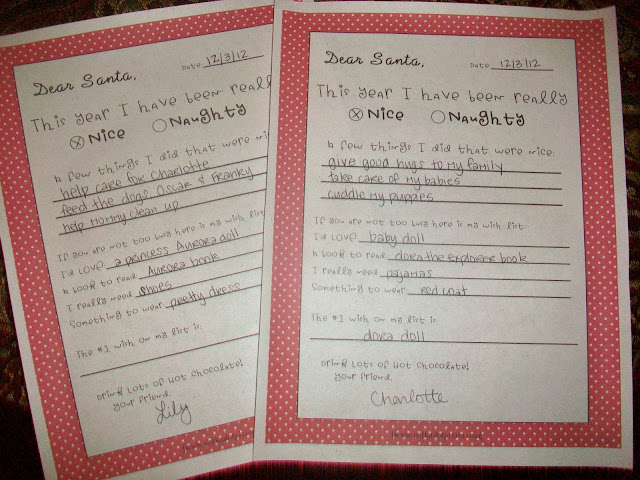 Dear Santa,
Date 12/3/12
This year I have been really
Nice Naughty
A few things I did that were nice:
help care for Charlotte
feed the dogs Oscar & Franky
help mommy clean up
If you are not too busy here is my wish list
I'd love a princess Aurora doll
A book to read Aurora book
I really need shoes
Something to wear pretty dress
The #1 wish on my list is:
Drink Lots of Hot Chocolate!
Your friend,
Lily
Dear Santa,
Date 12/3/12
This year I have been really
Nice Naughty
A few things I did that were nice:
give good hugs to my family
take care of my babies
cuddle my puppies
If you are not too busy here is my wish list
I'd love baby doll
A book to read dora the explorer book
I really need pajamas
Something to wear red coat
The #1 wish on my list is:
dora doll
Drink Lots of Hot Chocolate!
Your friend,
Charlotte